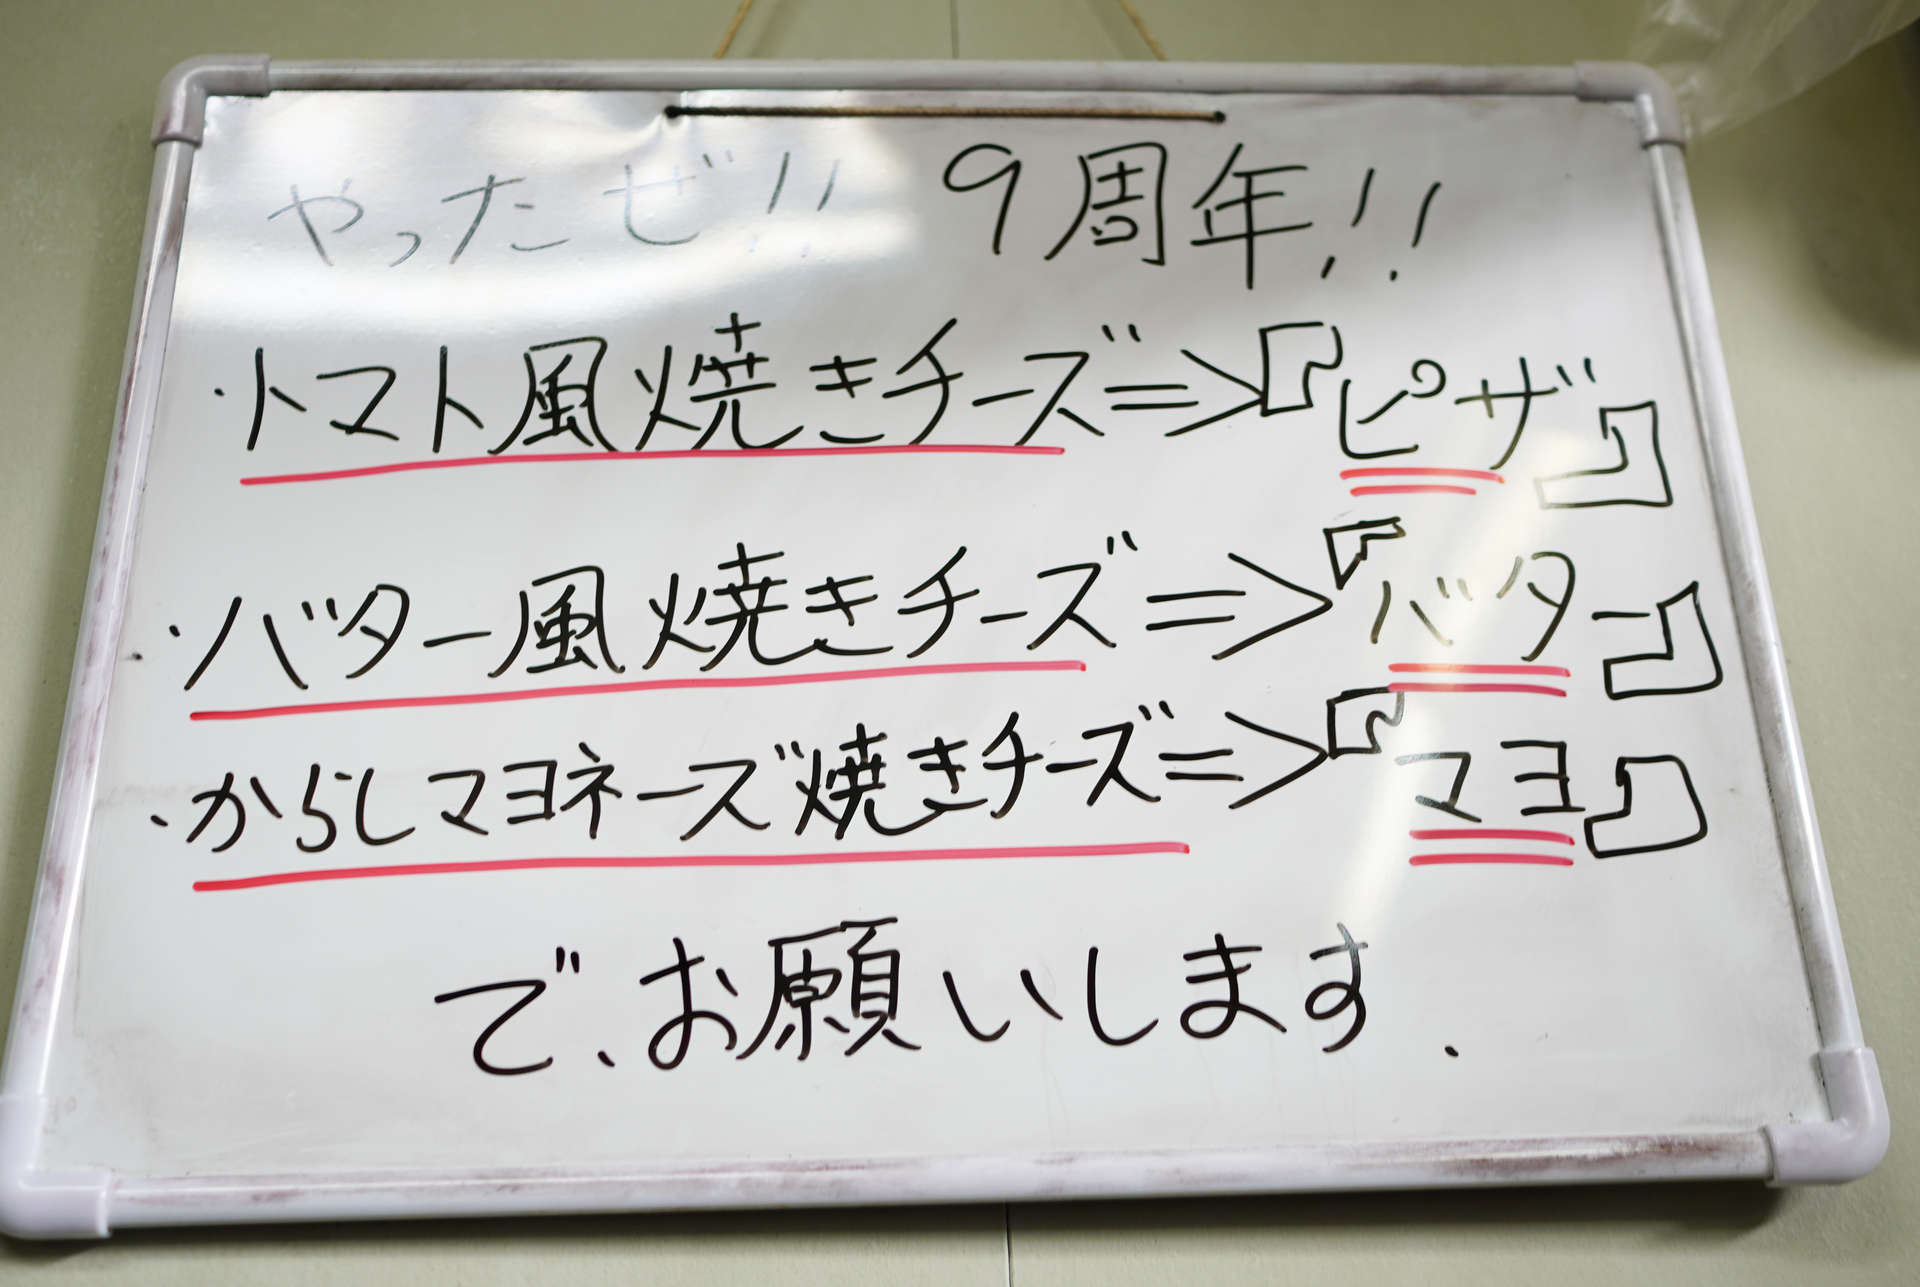 やったぜ!! 9周年!!
・トマト風焼きチーズ⇒『ピザ』
・バター風焼きチーズ⇒『バター』
・からしマヨネーズ焼きチーズ⇒『マヨ』
で、お願いします.